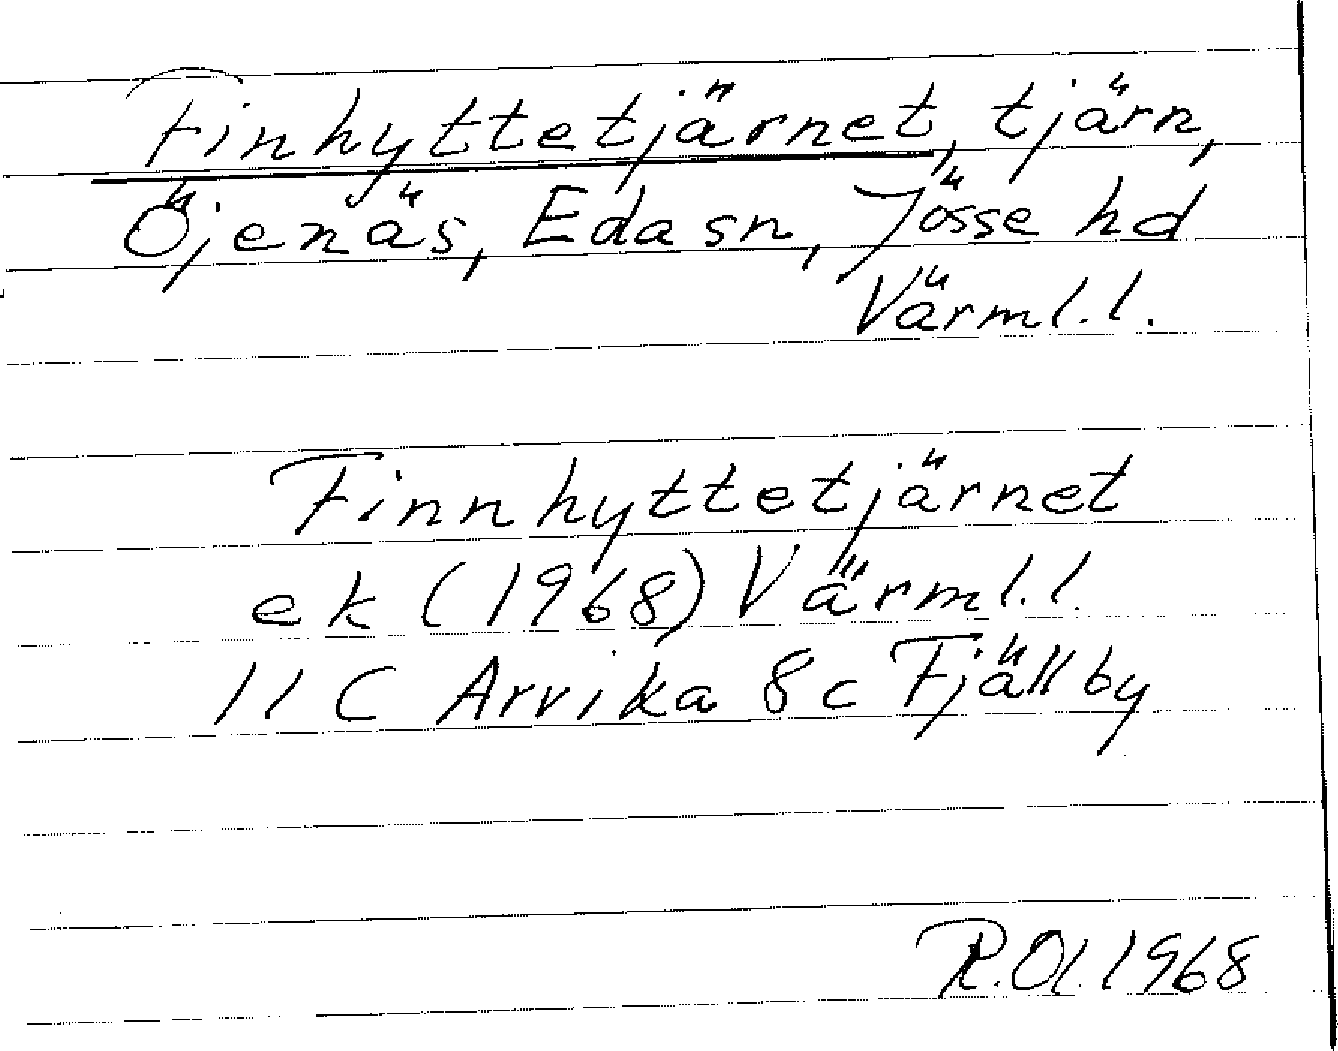 Finhyttetjärnet, tjärn,
Öjenäs, Eda sn, Jösse hd
Värml.l.
Finnhyttetjärnet
ek (1968) Värml.l.
11 C Arvika 8c Fjällby
R.Ol. 1968